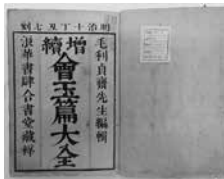 明治十丁丑七刻
毛利貞齋先生編輯
增續
會玉篇大全
浪華書肆合書堂藏梓